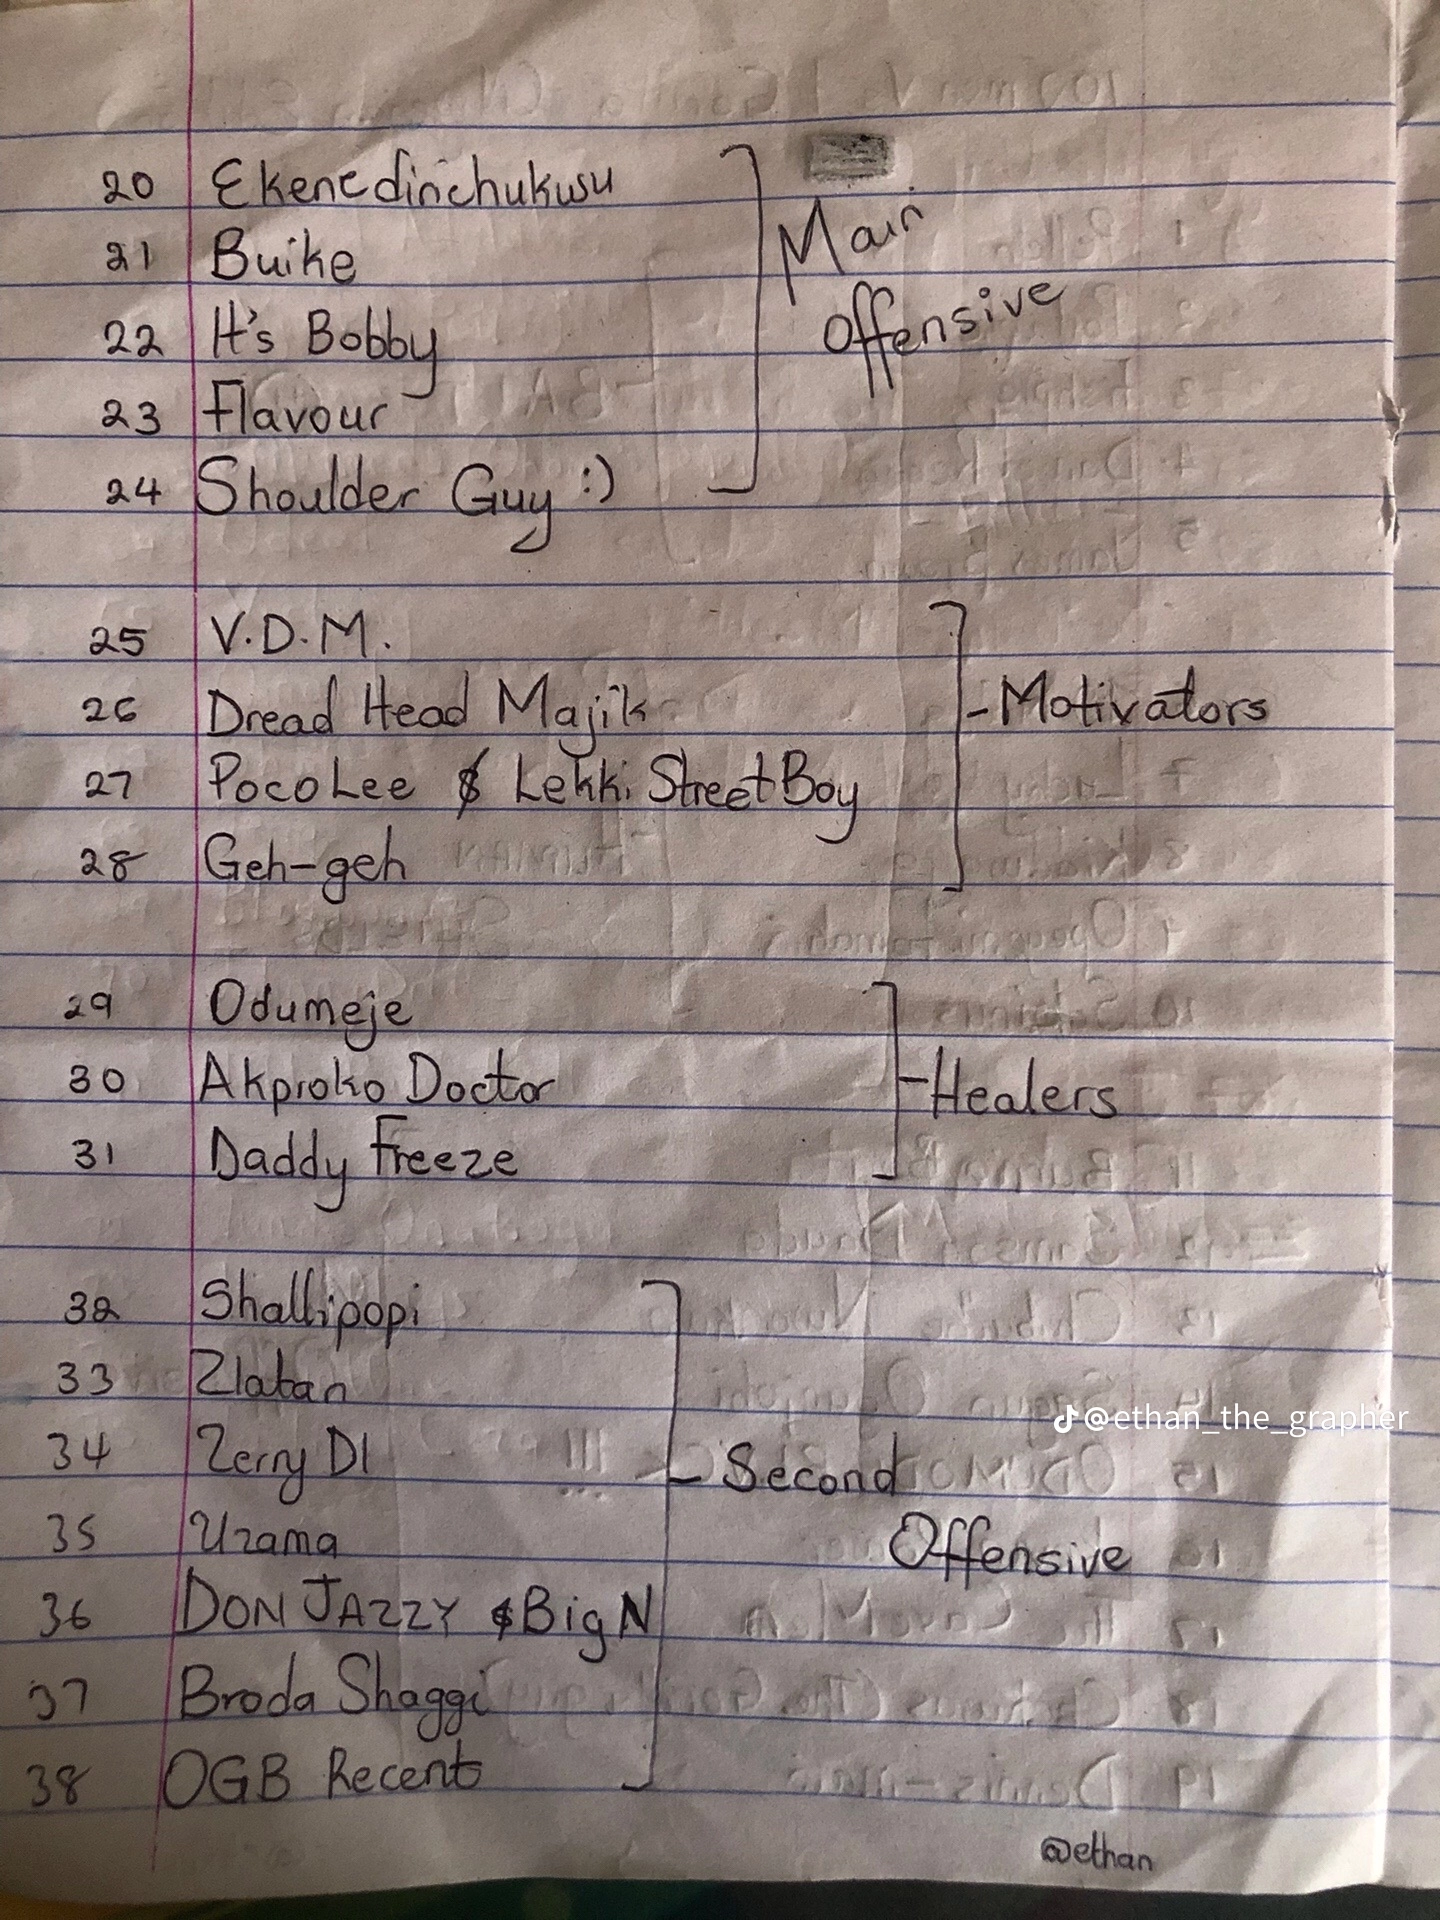 20 Ekenedirichukwu
21 Buike
22 It's Bobby
23 Flavour
24 Shoulder Guy :)
Main
Offensive
25 V.D.M.
26 Dread Head Majik
27 PocoLee & Lekki StreetBoy
28 Geh-geh
- Motivators
29 Odumeje
30 Akproko Doctor
31 Daddy Freeze
- Healers
32 Shallipopi
33 Zlatan
34 Zerry Dl
35 Uzama
36 DON JAZZY & Big N
37 Broda Shaggi
38 OGB Recent
- Second
Offensive
@ethan_the_grapher
@ethan